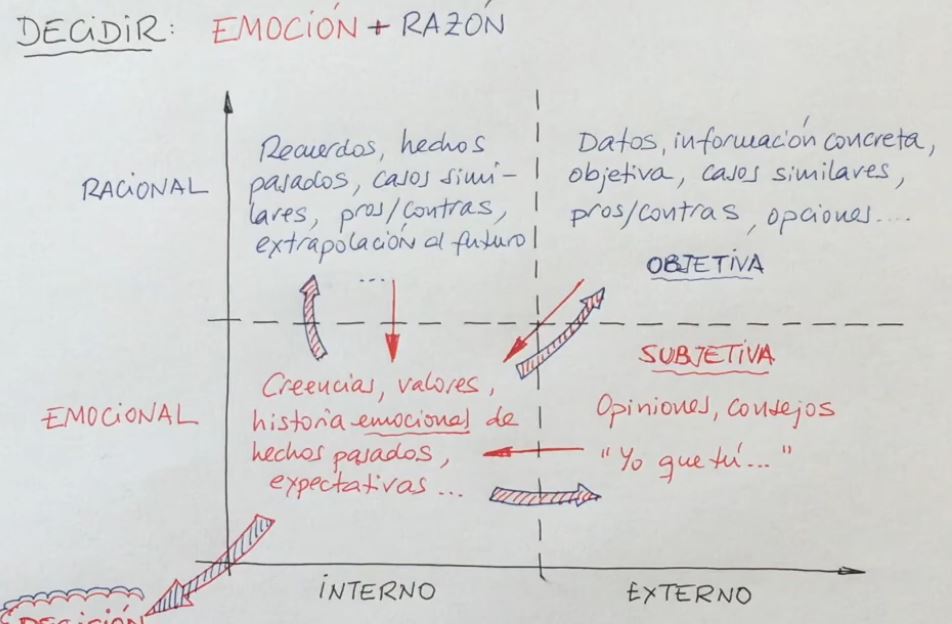 DECIDIR: EMOCIÓN + RAZÓN
RACIONAL
Recuerdos, hechos
pasados, casos simi-
lares, pros/contras,
extrapolación al futuro
...
Datos, información concreta,
objetiva, casos similares,
pros/contras, opciones....
OBJETIVA
EMOCIONAL
Creencias, valores,
historia emocional de
hechos pasados,
expectativas...
SUBJETIVA
Opiniones, consejos
"Yo que tú..."
INTERNO
EXTERNO
DECISIÓN